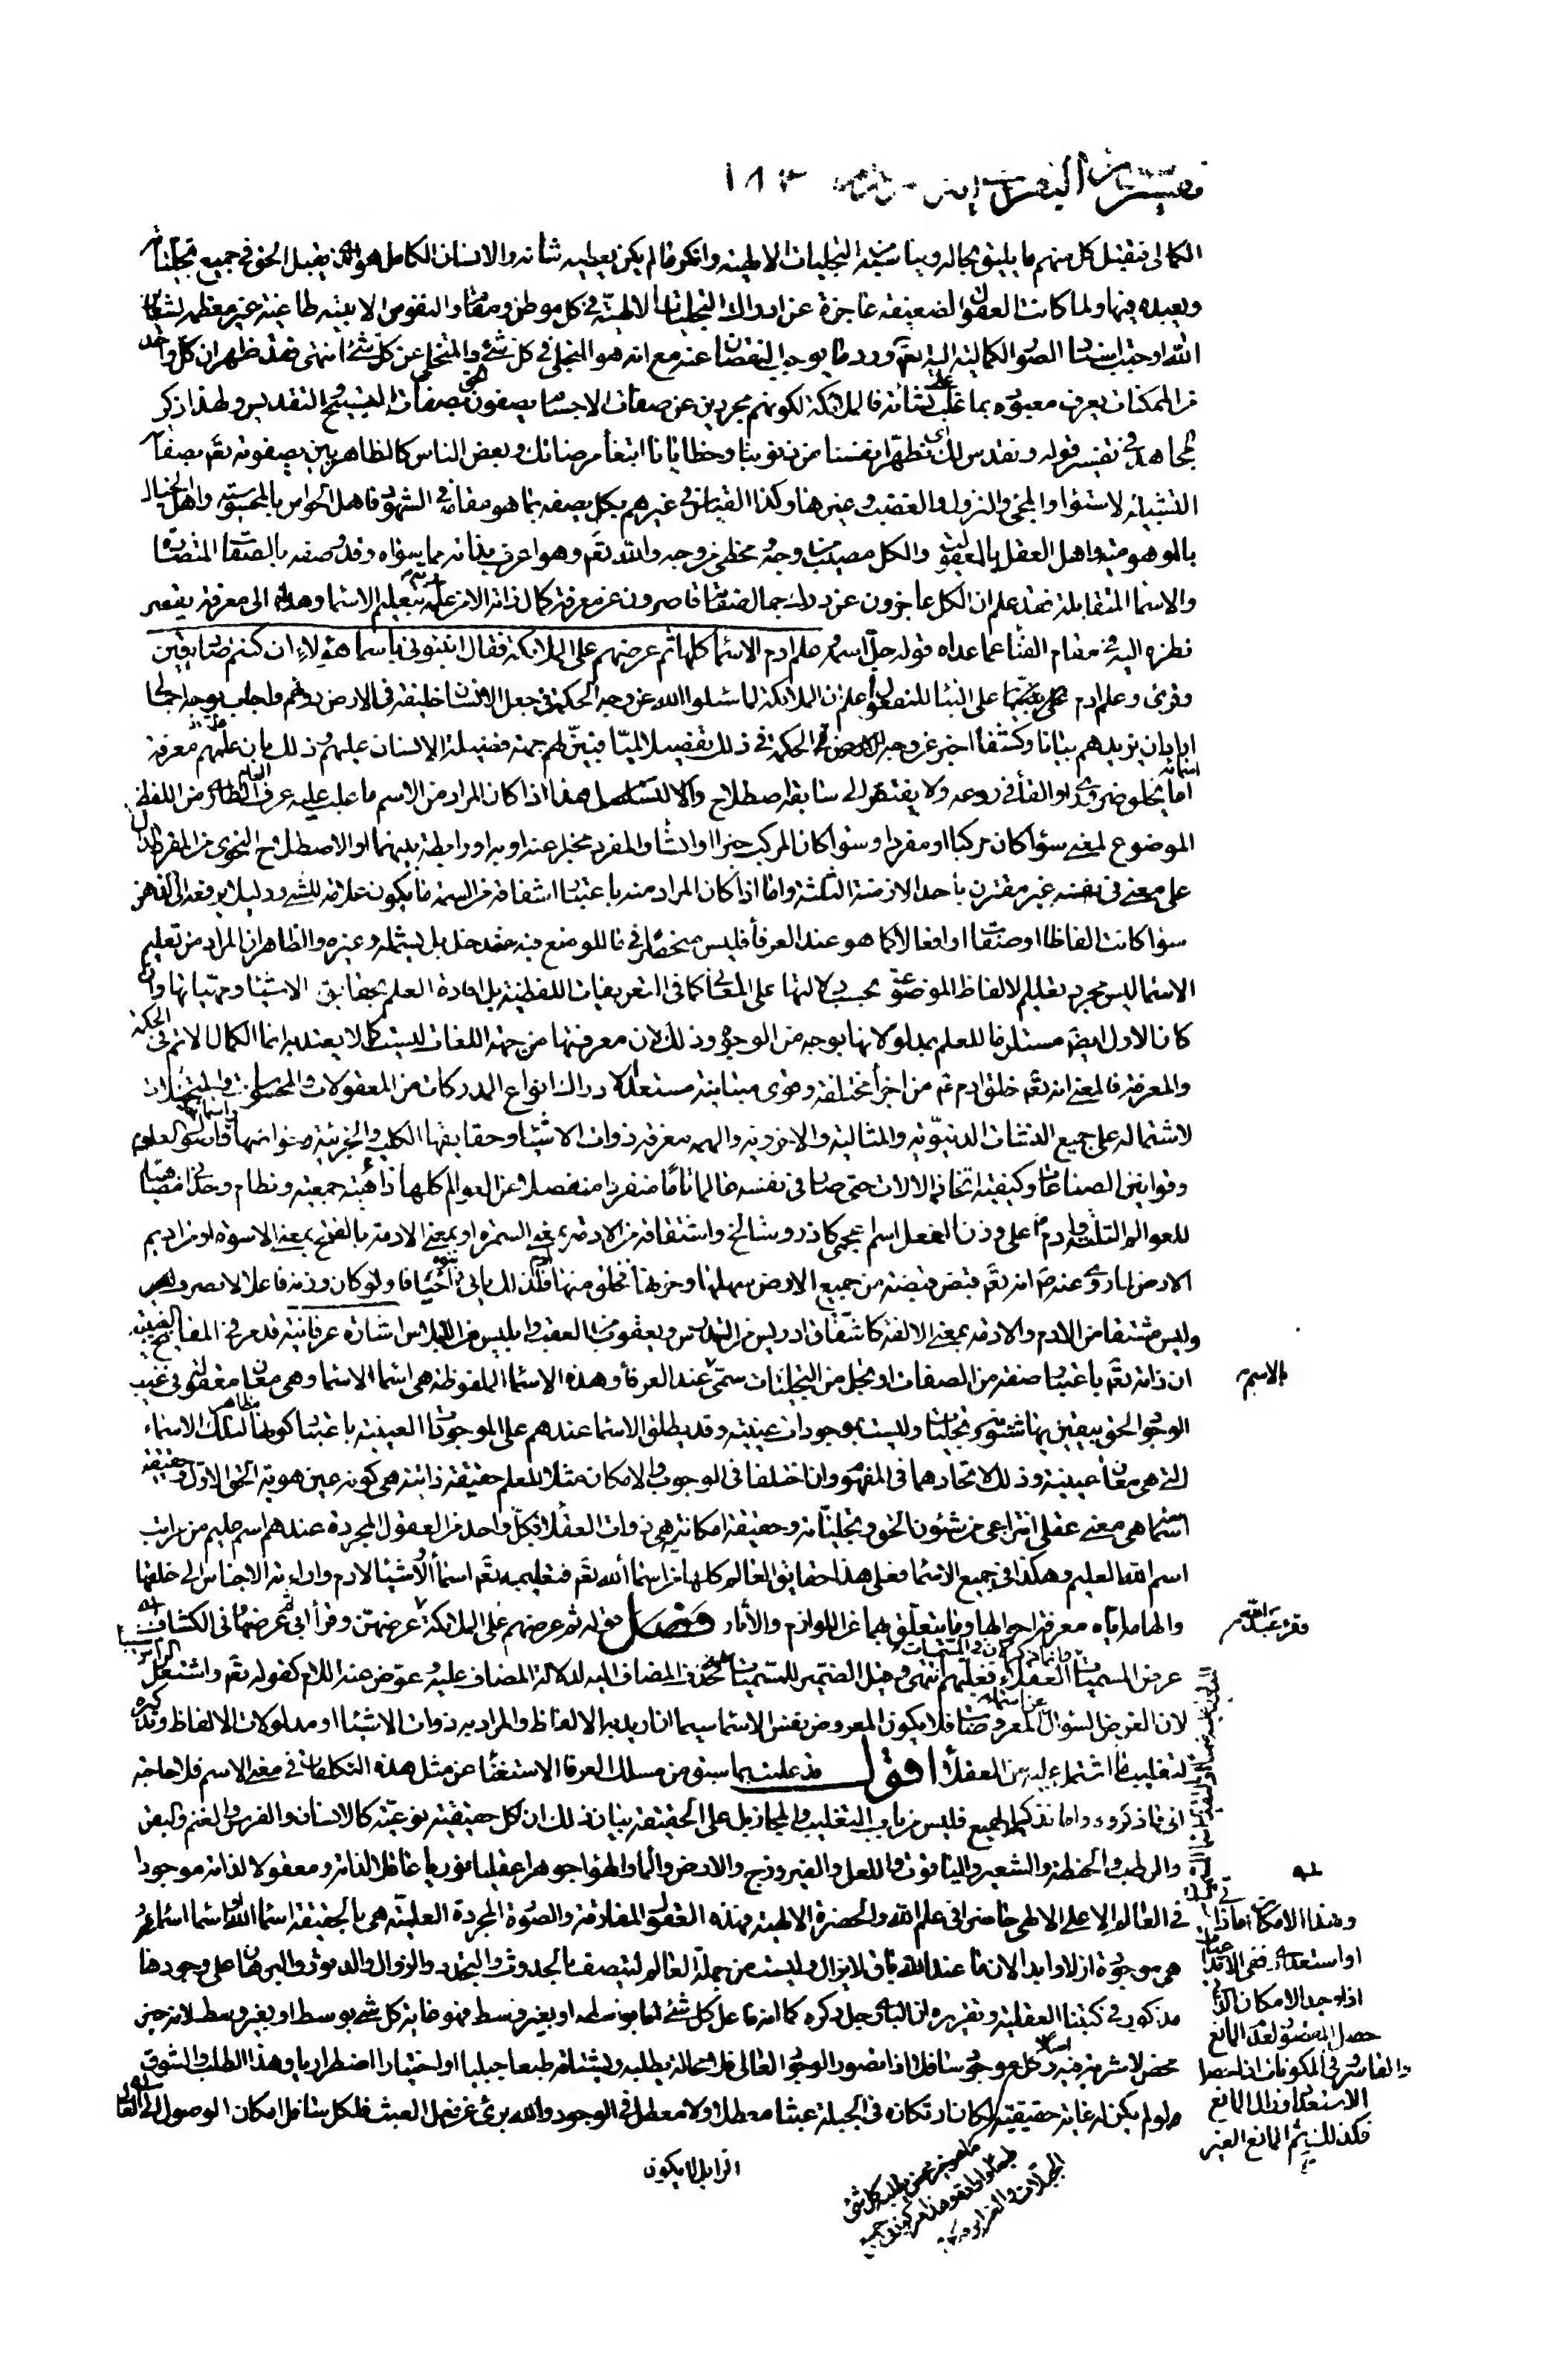 الكمالى فيقبل كل منهم ما يليق بحاله ويناسبه من التجليات الالهية وانكر ما لم يكن يعطيه شانه والانسان الكامل هو الذى يقبل الحق فى جميع تجلياته
ويعبده فيها ولما كانت العقول الضعيفة عاجزة عن ادراك التجليات الالهية فى كل موطن ومقام والنفوس الابية طاغية غير معظمة لشعائر
الله اوجب اسناد الصور الكمالية اليه تعالى ورد ما يوجب النقصان عنه مع انه هو المتجلى فى كل شئ والمتخلى عن كل شئ انتهى فقد ظهر ان كل واحد
من الممكنات يعرف معبوده بما غلب على نشأته فالملائكة لكونهم مجردين عن صفات الاجسام يصفون الحق بصفات التسبيح والتقديس ولهذا ذكر
مجاهد فى تفسير قوله ونقدس لك اى نطهر انفسنا من ذنوبنا وخطايانا ابتغاء مرضاتك وبعض الناس كالظاهريين يصفونه تعالى بصفات
التشبيه لاستواء والمجئ والنزول والغضب وغيرها وكذا القياس فى غيرهم فكل يصفه بما هو مقامه فى الشهود فاهل الحواس بالمحسوسية واهل الخيال
بالموهومية واهل العقل بالمعقولية والكل مصيب من وجه مخطئ من وجه والله تعالى وهو اعرف بذاته مما سواه وقد وصفه بالصفات المتضادة
والاسماء المتقابلة فقد علم ان الكل عاجزون عن درك جمال صفاته قاصرون عن معرفة كمال ذاته الا من علمه ربه بتعليم الاسماء وهداه الى معرفته بقصر
نظره اليه فى مقام الفناء عما عداه قوله جل اسمه وعلم ادم الاسماء كلها ثم عرضهم على الملائكة فقال انبئونى باسماء هؤلاء ان كنتم صادقين
وقرئ وعلم ادم على البناء للمفعول اعلم ان الملائكة لما سئلوا الله عن وجه الحكمة فى جعل الانسان خليفة فى الارض دونهم واجاب بوجه اجمالى
اراد ان يزيدهم بيانا وكشفا اخبر عن وجه الحكمة فى ذلك تفصيلا ليا فبين لهم جهة فضيلة الانسان عليهم وذلك بان علمهم معرفة
اما بخلق ضرورى او القاء فى روعه ولا يفتقر الى سابقة اصطلاح والا لتسلسل هذا اذا كان المراد من الاسم ما غلب عليه عرف العام الطارى من اللفظ
الموضوع لمعنى سواء كان مركبا او مفردا وسواء كان المركب خبرا او انشاء والمفرد مخبرا عنه او به او رابطة بينهما او الاصطلاح النحوى من المفرد الدال
على معنى فى نفسه غير مقترن باحد الازمنة الثلثة واما اذا كان المراد منه باعتبار اشتقاقه من السمة ما يكون علامة للشئ ودليلا يرفعه الى الذهن
سواء كانت الفاظا او صفات او افعالا كما هو عند العرفاء فليس منحصرا فى ما للوضع فيه مدخل بل يشمله وغيره والظاهر ان المراد من تعليم
الاسماء ليس مجرد تعليم الالفاظ الموضوعة بحسب دلالتها على المعانى كما فى التعريفات اللفظية بل افادة العلم بحقايق الاشياء ومهياتها وان
كان الاول ايضا مستلزما للعلم بمدلولاتها بوجه من الوجوه وذلك لان معرفتها من جهة اللغات ليست كمالا يعتد به انما الكمال الاتم فى الحكمة
والمعرفة فالمعنى انه تعالى خلق ادم من اجزاء مختلفة وقوى متباينة مستعدا لادراك انواع المدركات من المعقولات والمحسوسات والمتخيلات
لاشتماله على جميع النشات الدنيوية والمثالية والاخروية والهمه معرفة ذوات الاشياء وحقايقها الكلية والجزئية وخواصها واسمائها واصول العلوم
وقوانين الصناعات وكيفية اتخاذ الالات حتى صار فى نفسه عالما تاما منفردا منفصلا عن العوالم كلها ذا هيئة جمعية ونظام وحدانى مضاهيا
للعوالم الثلثة وادم على وزن افعل اسم عجمى كاذر وشالخ واشتقاقه من الادمة بمعنى السمرة او بمعنى الادمة بالفتح بمعنى الاسوة او من اديم
الارض لما روى عنه ص انه تعالى قبض قبضة من جميع الارض سهلها وحزنها فخلق منها ادم فلذلك يأتى بنوه اخيافا ولو كان وزنه فاعلا لانصرف
وليس مشتقا من الادم والادمة بمعنى الالفة كاشتقاق ادريس من الدرس ويعقوب من العقب وابليس من الابلاس اشارة عرفانية قد عرف فى المفاتيح الغيبية
ان ذاته تعالى باعتبار صفة من الصفات او تجل من التجليات سمى عند العرفاء وهذه الاسماء الملفوظة هى اسماء الاسماء وهى معان معقولة فى غيب
بالاسم
الوجود الحق يتعين بها شئون وتجليات وليست بموجودات عينية وقد يطلق الاسماء عندهم على الموجودات العينية باعتبار كونها مظاهر لتلك الاسماء
التى هى معان غيبية وذلك لاتحادهما فى المفهوم وان اختلفا فى الوجوب والامكان مثلا للعلم حقيقة ذاتية هى كونه عين هوية الحق الاول وحقيقة
اسمية هى معنى عقلى انتزاعى من شئون الحق وتجلياته وحقيقة امكانية هى ذوات العقلاء فكل واحد من العقول المجردة عندهم اسم عليم من مراتب
اسم الله العليم وهكذا فى جميع الاسماء فعلى هذا حقايق العالم كلها من اسماء الله تعالى فتعليمه تعالى اسماء الاشياء لادم واراءته الاجناس التى خلقها
والهامه اياه معرفة احوالها وما يتعلق بها من اللوازم والاثار فصل قوله ثم عرضهم على الملائكة عرضهن وقرأ ابى ثم عرضها فى الكشاف
وقرء عبد الله
عرض المسميات العقلاء فغلبهم انتهى وقيل الضمير للمسميات فحذف المضاف اليه لدلالة المضاف عليه وعوض عنه اللام كقوله تعالى واشتعل الراس شيبا
لان الغرض السؤال عن اسماء المعروضات فلا يكون المعروض نفس الاسماء سيما ان اريد به الالفاظ والمراد به ذوات الاشياء او مدلولات الالفاظ وتذكيره
لتغليب ما اشتمل عليه من العقلاء اقول قد علمت بما سبق من مسلك العرفا الاستغناء عن مثل هذه التكلفات فى معنى الاسم فلا حاجة
الى ما ذكروه واما تذكير الجميع فليس من باب التغليب والمجاز بل على الحقيقة بيان ذلك ان لكل حقيقة نوعية كالانسان والفرس والغنم والبقر
والرطب والحنطة والشعير والياقوت واللعل والفيروزج والارض والماء والهواء جوهرا عقليا نوريا عاقلا لذاته ومعقولا لذاته موجودا
فى العالم الاعلى الالهى حاضرا فى علم الله والحضرة الالهية فهذه العقول المفارقة والصور المجردة العلمية هى بالحقيقة اسماء الله او اسماء اسمائه
هى موجودة ازلا وابدا لان ما عند الله باق لا يزال وليست من جملة العالم ليتصف بالحدوث والتجدد والزوال والدثور والبرهان على وجودها
مذكور فى كتبنا العقلية وتقريره ان البارى جل ذكره كما انه فاعل كل شئ اما بوسط او بغير وسط فهو غاية كل شئ بوسط او بغير وسط لانه خير
محض لا شرية فيه وكل موجود سافل اذا تصور الوجود العالى فلا محالة يطلبه ويشتاقه طبعا جبليا او اختيارا اضطراريا وهذا الطلب والشوق
ولو لم يكن له غاية حقيقية لكان ارتكازه فى الجبلة عبثا معطلا ولا معطل فى الوجود والله برئ عن فعل العبث فلكل سافل امكان الوصول الى العالى
وهذا الامكان اما ذاتى
او استعدادى ففى
اذا وجد الامكان الذاتى
حصل المقتضى لعدم المانع
والفاسد فى المكونات اذا حصل
الاستعداد وزال المانع
فكذلك ثم المانع الغير
الزايل لا يكون